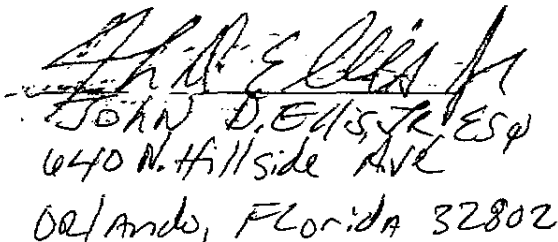 John D Ellis Jr
JOHN D. Ellis, JR, ESQ
640 N. Hillside Ave
Orlando, Florida 32802